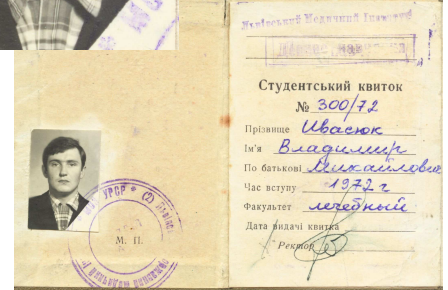 Львівський Медичний Інститут
Студентський квиток
№ 300/72
Прізвище Ивасюк
Ім'я Владимир
По батькові Михайлович
Час вступу 1972 г
Факультет лечебный
Дата видачі квитка
Ректор
М. П.
УРСР * (2)